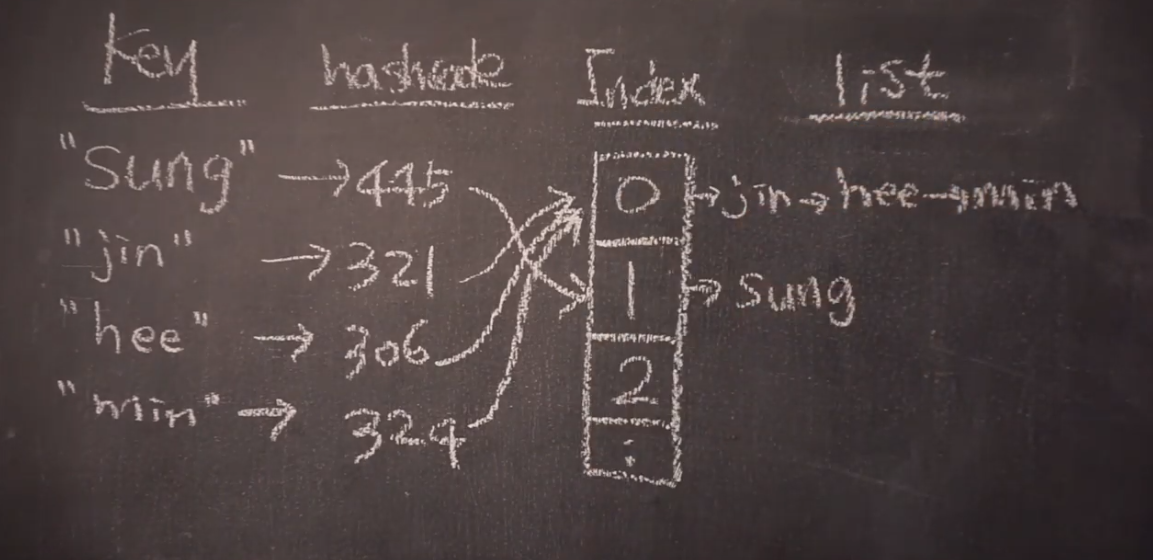 Key hashcode Index list
"Sung" → 445 0 → jin → hee → min
"jin" → 321 1 → Sung
"hee" → 306 2
"min" → 324 :